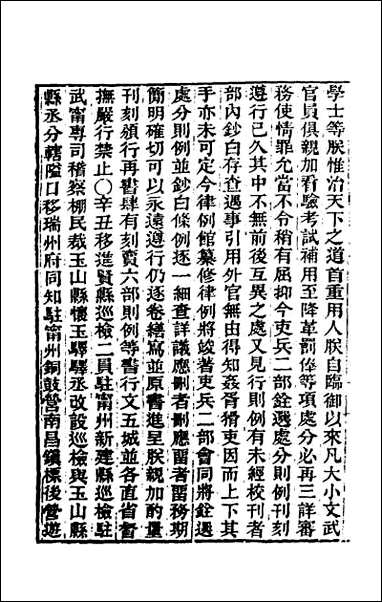 學士等朕惟治天下之道首重用人朕自臨御以來凡大小文武
官員俱親加看驗考試補用至降革罰俸等項處分必再三詳審
務使情罪允當不令稍有屈抑今吏兵二部銓選處分則例刊刻
遵行已久其中不無前後互異之處又見行則例有未經校刊者
部內鈔白存查遇事引用外官無由得知姦胥猾吏因而上下其
手亦未可定今律例館纂修律例將竣著吏兵二部會同將銓選
處分則例並鈔白條例逐一細查詳議應刪者刪應畱者畱務期
簡明確切可以永遠遵行仍逐卷繕寫並原書進呈朕親加酌量
刊刻頒行再書肆有刻賣六部則例等書行文五城並各直省督
撫嚴行禁止○辛丑移進賢縣巡檢二員駐甯州新建縣巡檢駐
武甯專司稽察棚民裁玉山縣懷玉驛驛丞改設巡檢與玉山縣
縣丞分轄隘口移瑞州府同知駐甯州銅鼓營南昌鎮標後營遊